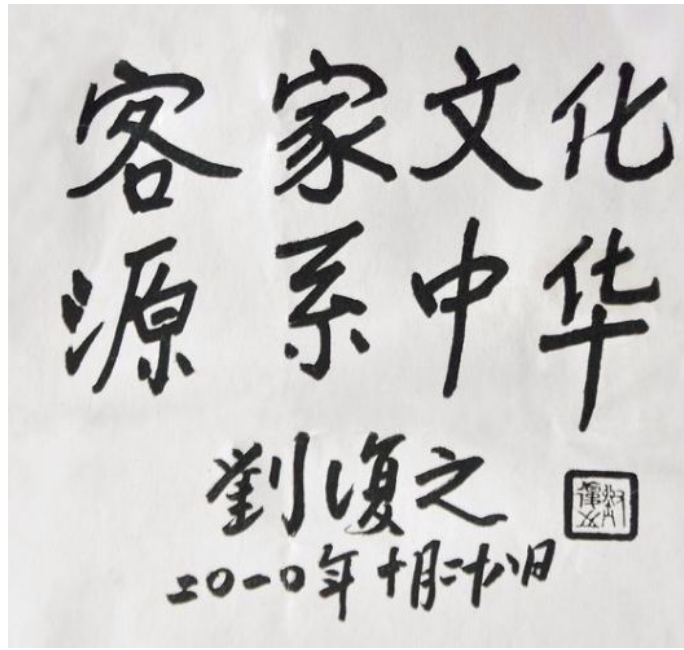 客家文化
源系中华
劉復之
二〇一〇年十月二十八日